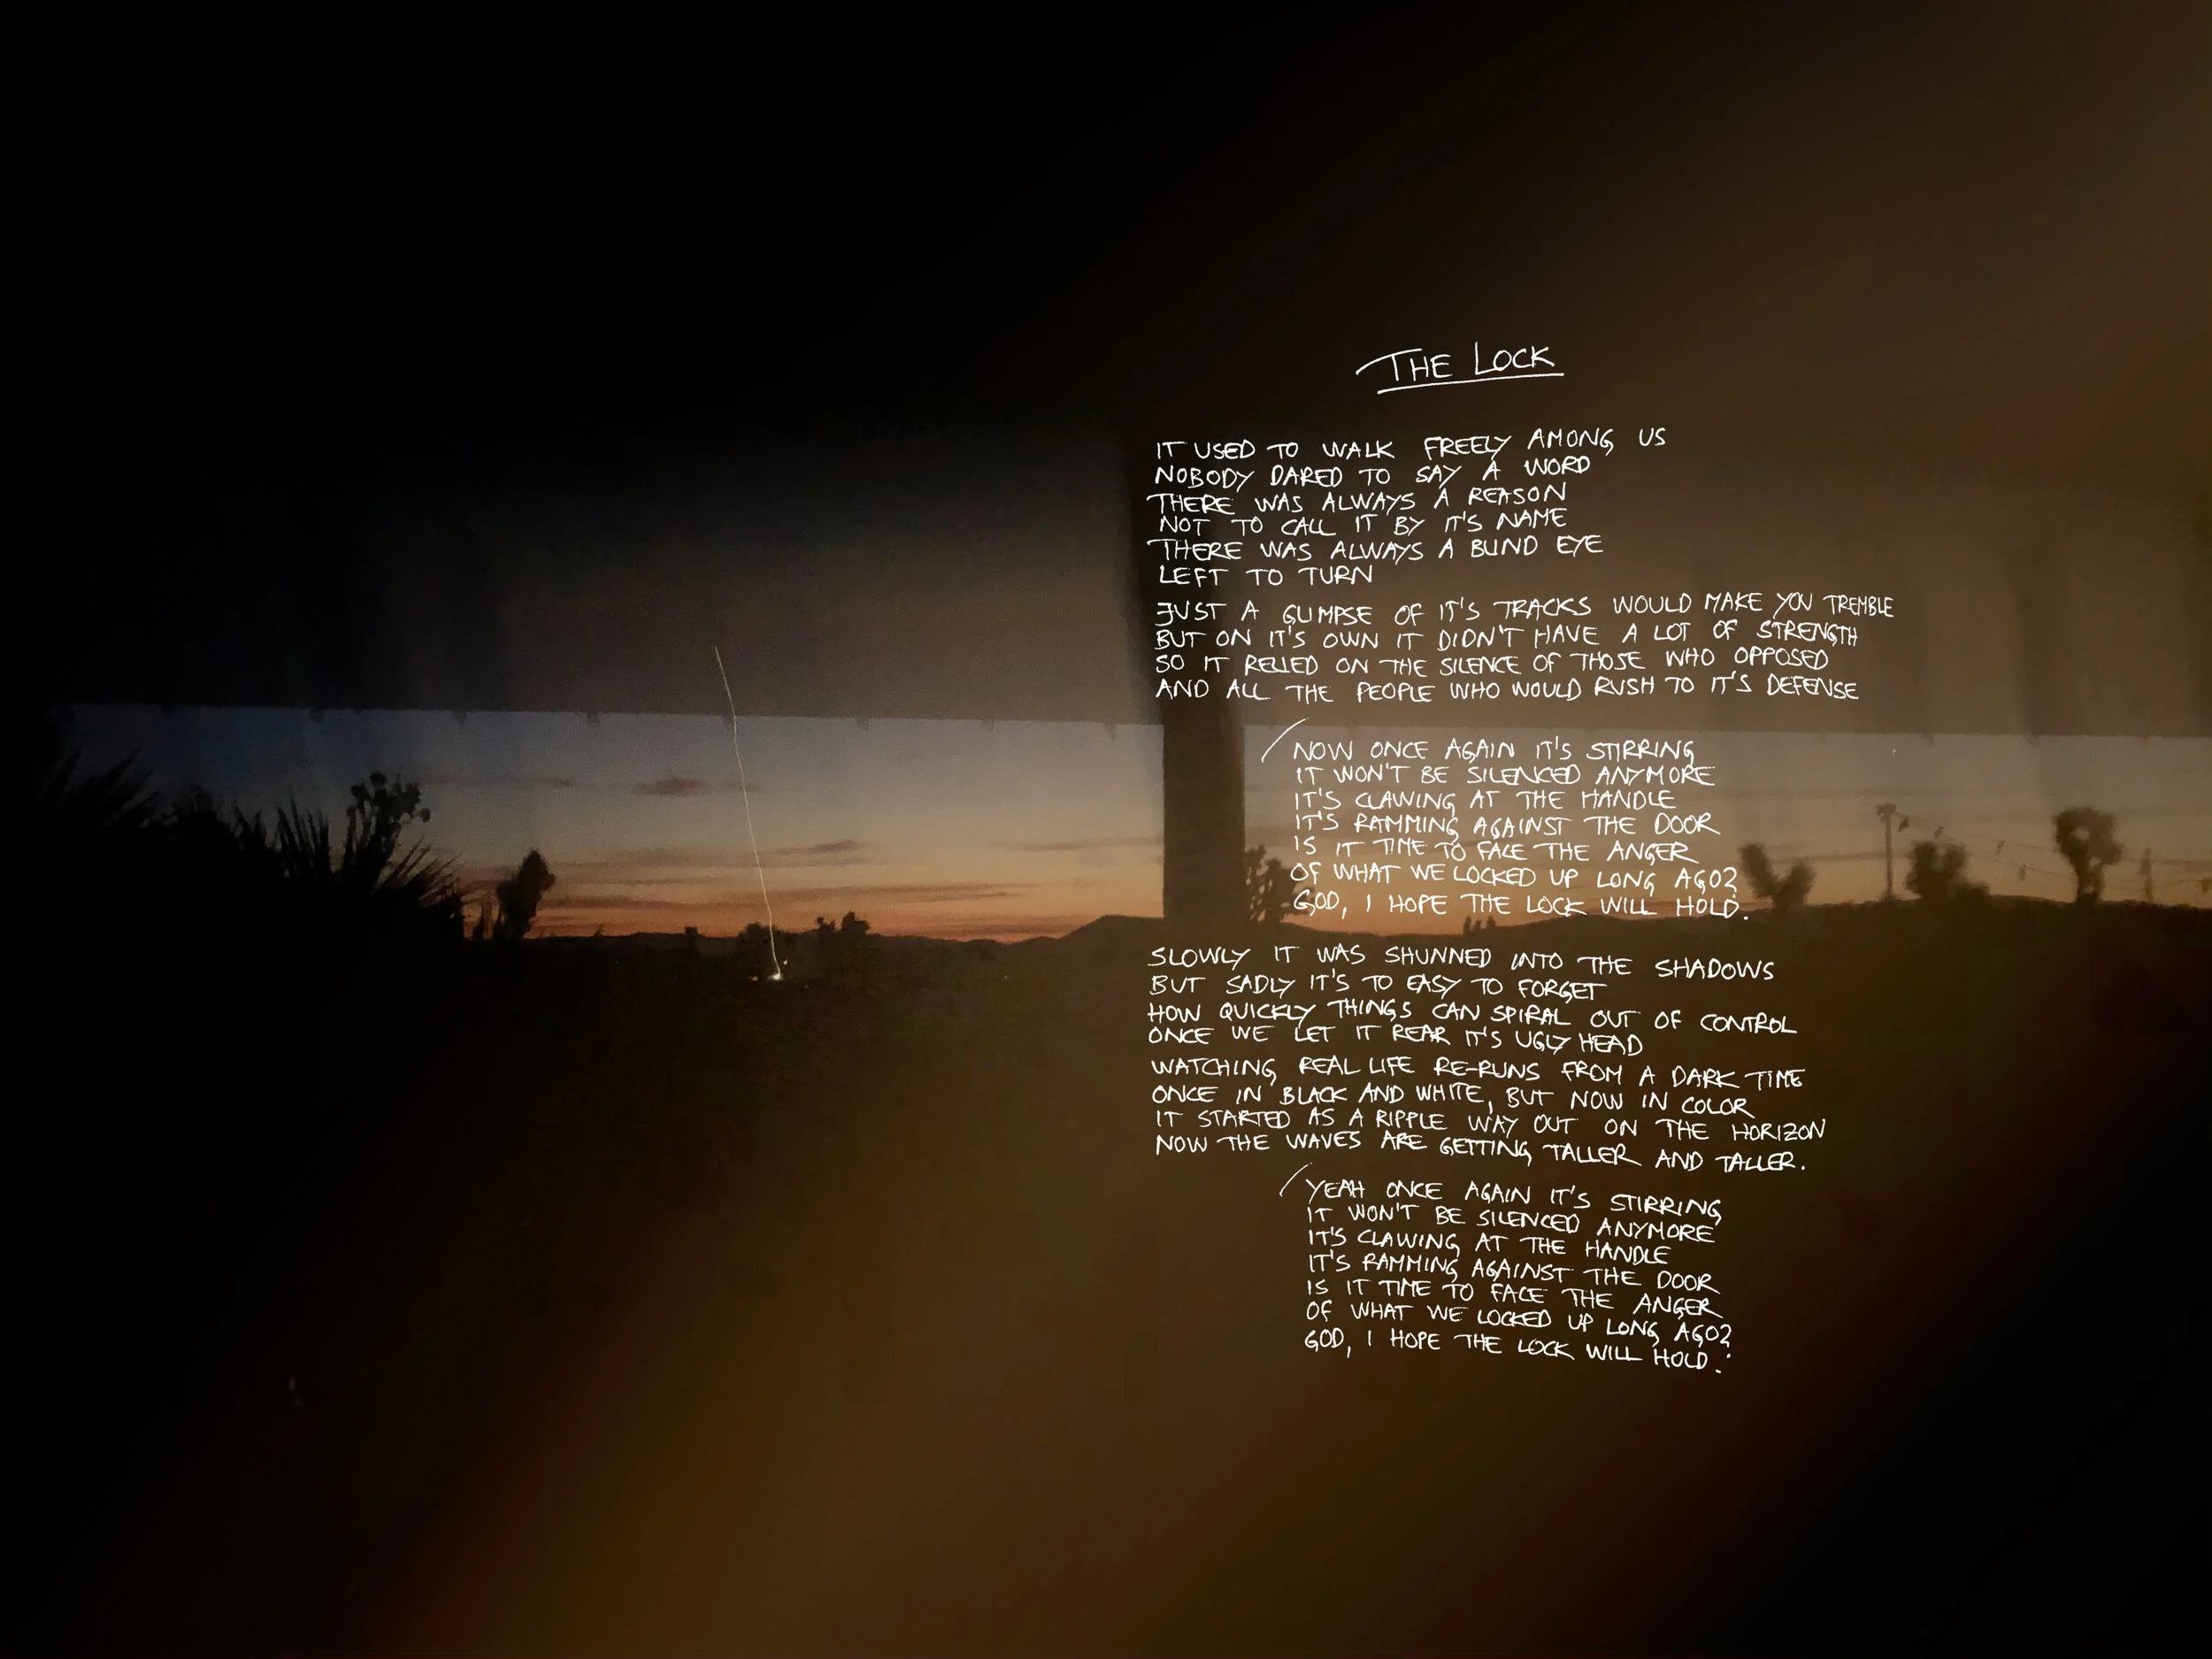 THE LOCK
IT USED TO WALK FREELY AMONG US
NOBODY DARED TO SAY A WORD
THERE WAS ALWAYS A REASON
NOT TO CALL IT BY IT'S NAME
THERE WAS ALWAYS A BLIND EYE
LEFT TO TURN
JUST A GLIMPSE OF IT'S TRACKS WOULD MAKE YOU TREMBLE
BUT ON IT'S OWN IT DIDN'T HAVE A LOT OF STRENGTH
SO IT RELIED ON THE SILENCE OF THOSE WHO OPPOSED
AND ALL THE PEOPLE WHO WOULD RUSH TO IT'S DEFENSE
NOW ONCE AGAIN IT'S STIRRING
IT WON'T BE SILENCED ANYMORE
IT'S CLAWING AT THE HANDLE
IT'S RAMMING AGAINST THE DOOR
IS IT TIME TO FACE THE ANGER
OF WHAT WE LOCKED UP LONG AGO?
GOD, I HOPE THE LOCK WILL HOLD.
SLOWLY IT WAS SHUNNED INTO THE SHADOWS
BUT SADLY IT'S TO EASY TO FORGET
HOW QUICKLY THINGS CAN SPIRAL OUT OF CONTROL
ONCE WE LET IT REAR IT'S UGLY HEAD
WATCHING REAL LIFE RE-RUNS FROM A DARK TIME
ONCE IN BLACK AND WHITE, BUT NOW IN COLOR
IT STARTED AS A RIPPLE WAY OUT ON THE HORIZON
NOW THE WAVES ARE GETTING TALLER AND TALLER.
YEAH ONCE AGAIN IT'S STIRRING
IT WON'T BE SILENCED ANYMORE
IT'S CLAWING AT THE HANDLE
IT'S RAMMING AGAINST THE DOOR
IS IT TIME TO FACE THE ANGER
OF WHAT WE LOCKED UP LONG AGO?
GOD, I HOPE THE LOCK WILL HOLD.